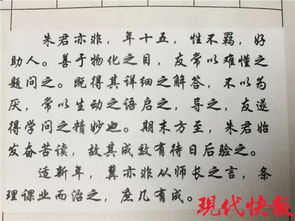 朱君亦非，年十五，性不羁，好
助人。善于物化之目，友常以难懂之
题问之。既得其详细之解答，不以为
厌，常以生动之语启之，导之，友遂
得学问之精妙也。期末方至，朱君始
发奋苦读，故其成数有待日后验之。
适新年，冀亦非从师长之言，条
理课业而治之，庶几有成。
现代快报